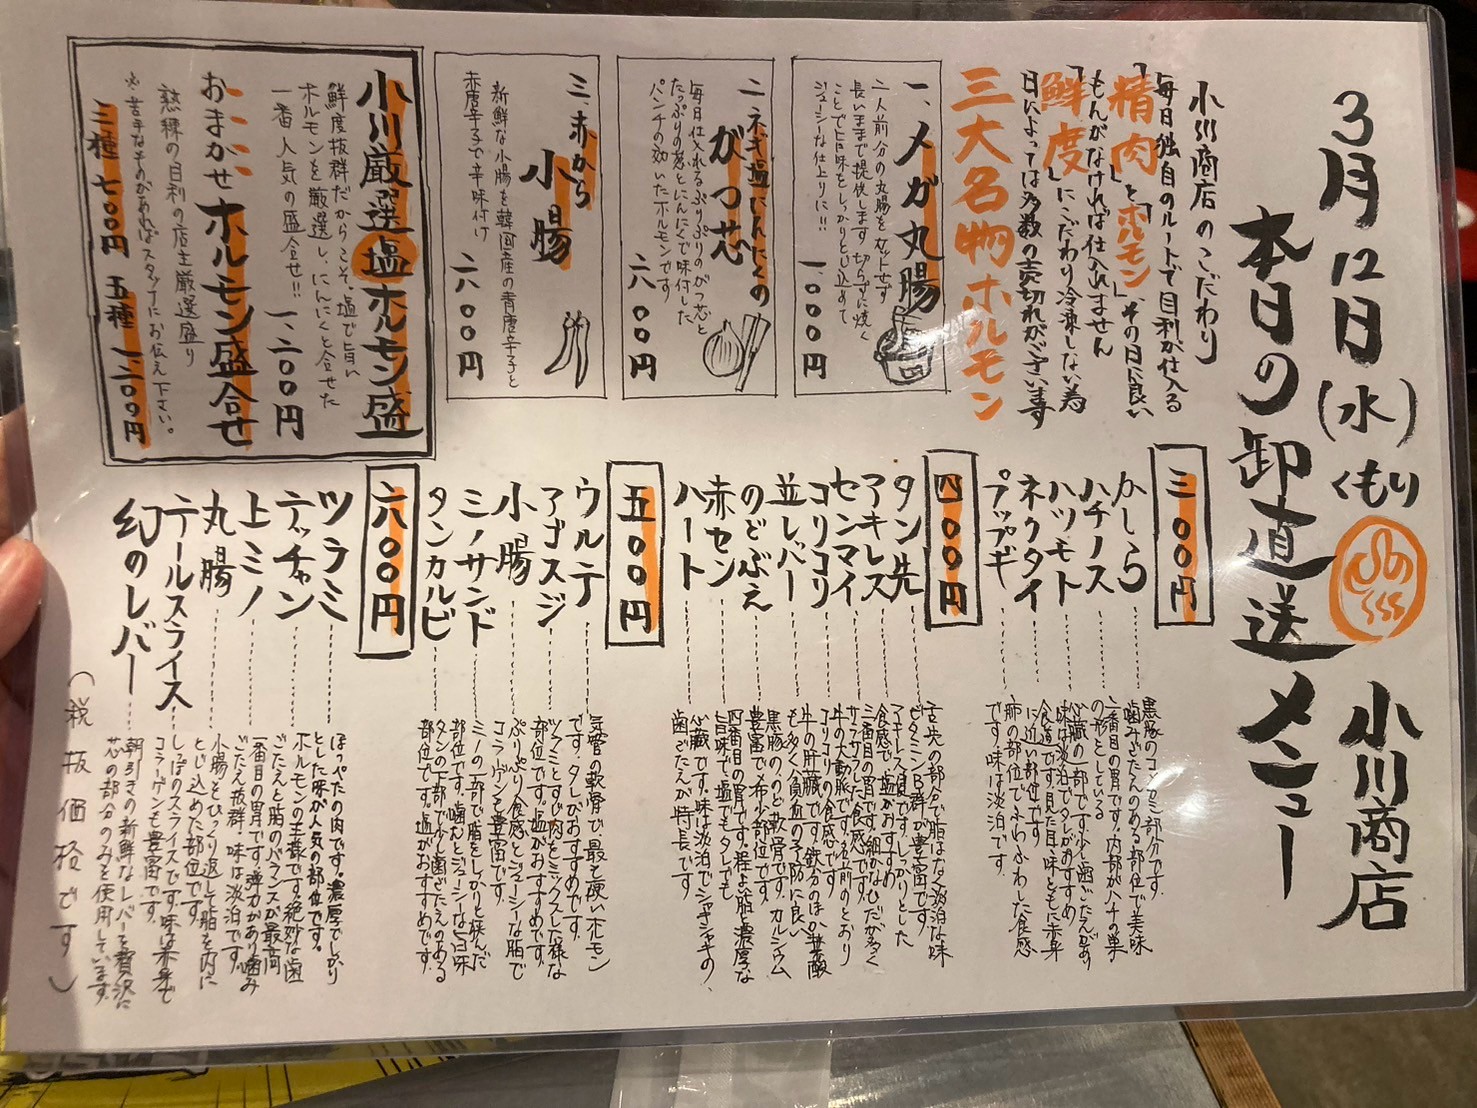 3月12日(水)くもり
小川商店
本日の卸直送メニュー
小川商店のこだわり
毎日独自のルートで目利が仕入る
「精肉」と「ホルモン」その日に良い
もんがなければ仕入れません
「鮮度」にこだわり冷凍しない為
日によっては多数の売切れがございます
三大名物ホルモン
一、メガ丸腸
二人前分の丸腸をカットせず
長いままで提供します。切らずに焼く
ことで旨味をしっかりとじ込めて
ジューシーな仕上りに!!
一、〇〇〇円
二、ネギ塩にんにくの
がつ芯
毎日仕入れるぷりぷりのがつ芯と
たっぷりの葱とにんにくで味付した
パンチの効いたホルモンです
六〇〇円
三、赤から
小腸
新鮮な小腸を韓国産の青唐辛子と
赤唐辛子で辛味付け
六〇〇円
小川厳選塩ホルモン盛
鮮度抜群だからこそ。塩で旨い
ホルモンを厳選し、にんにくと合せた
一番人気の盛合せ!!
一、二〇〇円
おまかせホルモン盛合せ
熟練の目利の店主厳選盛り
※苦手なものがあればスタッフにお伝え下さい。
三種 七〇〇円 五種 一、二〇〇円
三〇〇円
かしら
黒豚のコメカミ部分です。
歯ごたえのある部位で美味
ハチノス
二番目の胃です。内部がハチの巣
の形をしている
ハツモト
心臓の一部です。少し歯ごたえがあり
味は淡泊でタレがおすすめ
ネクタイ
食道です。見た目・味ともに赤身
に近い部位です
プップギ
肺の部位でふわふわした食感
です。味は淡泊です。
四〇〇円
タン先
舌先の部分で脂は少なく淡泊な味
ビタミンB群が豊富です。
アキレス
アキレス腱です。しっかりとした
食感で塩がおすすめ
センマイ
三番目の胃です。細かなひだが多く
サクサクした食感です。
コリコリ
牛の大動脈です。名前のとおり
コリコリの食感です
並レバー
牛の肝臓です。鉄分のほか葉酸
も多く貧血の予防に良い
のどぶえ
黒豚の、のど軟骨です。カルシウム
豊富で希少部位です。
赤セン
四番目の胃です。程よい脂と濃厚な
旨味で塩でもタレでも
ハート
心臓です。味は淡泊でシャキシャキの、
歯ごたえが特長です
五〇〇円
ウルテ
気管の軟骨で、最も硬いホルモン
です。タレがおすすめです。
アゴスジ
ツラミとすじ肉をミックスした様な
部位です。塩がおすすめです。
小腸
ぷりぷり食感とジューシーな脂で
コラーゲンも豊富です。
ミノサンド
ミノの一部で脂をしっかりと挟んだ
部位です。噛むとジューシーな旨味
タンカルビ
タンの下部で少し歯ごたえのある
部位です。塩がおすすめです。
六〇〇円
ツラミ
ほっぺたの肉です。濃厚でしっかり
とした味が人気の部位です。
テッチャン
ホルモンの王様です。絶妙な歯
ごたえと脂のバランスが最高
上ミノ
一番目の胃です。弾力があり歯ご
ごたえ抜群・味は淡泊です。
丸腸
小腸をひっくり返して脂を内に
とじ込めた部位です。
テールスライス
しっぽのスライスです。味は赤身で
コラーゲンも豊富です。
幻のレバー
朝引きの新鮮なレバーを贅沢に
芯の部分のみを使用しています。
(税抜価格です)